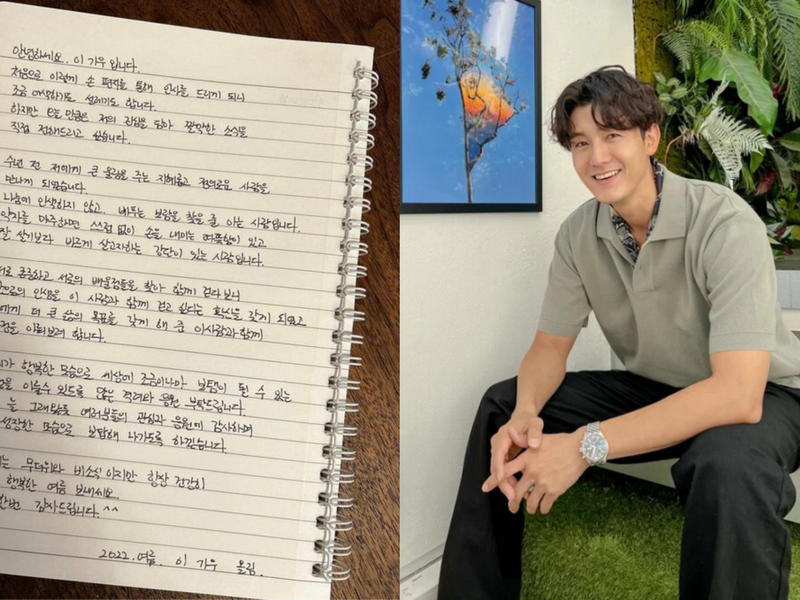 안녕하세요. 이 기우 입니다.
처음으로 이렇게 손 편지를 통해 인사를 드리게 되니
조금 어색하기도 설레기도 합니다.
하지만 오늘 만큼은 저의 진심을 담아 깜짝한 소식을
직접 전해드리고 싶습니다.
수년 전 저에게 큰 울림을 주는 지혜롭고 정의로운 사람을
만나게 되었습니다.
나눔에 인색하지 않고, 베푸는 보람을 찾을 줄 아는 사람입니다.
약자를 마주하면 스스럼 없이 손을 내미는 따뜻함이 있고
잘 살기보다 바르게 살고자하는 강단이 있는 사람입니다.
서로 존중하고 서로의 배울점들을 찾아 함께 걷다보니
인생을 이 사람과 함께 걷고 싶다는 확신을 갖게 되었고
에게 더 큰 삶의 목표를 갖게 해 준 이사람과 함께
정을 이뤄보려 합니다.
가 행복한 모습으로 세상에 조금이나마 보탬이 될 수 있는
을 이룰수 있도록 많은 격려와 응원 부탁드립니다.
늘 그래왔듯 여러분들의 관심과 응원에 감사하며
성장한 모습으로 보답해 나가도록 하겠습니다.
는 무더위와 비소식 이지만 항상 건강히
행복한 여름 보내세요.
한번 감사드립니다.^^
2022.여름. 이 기우 올림.